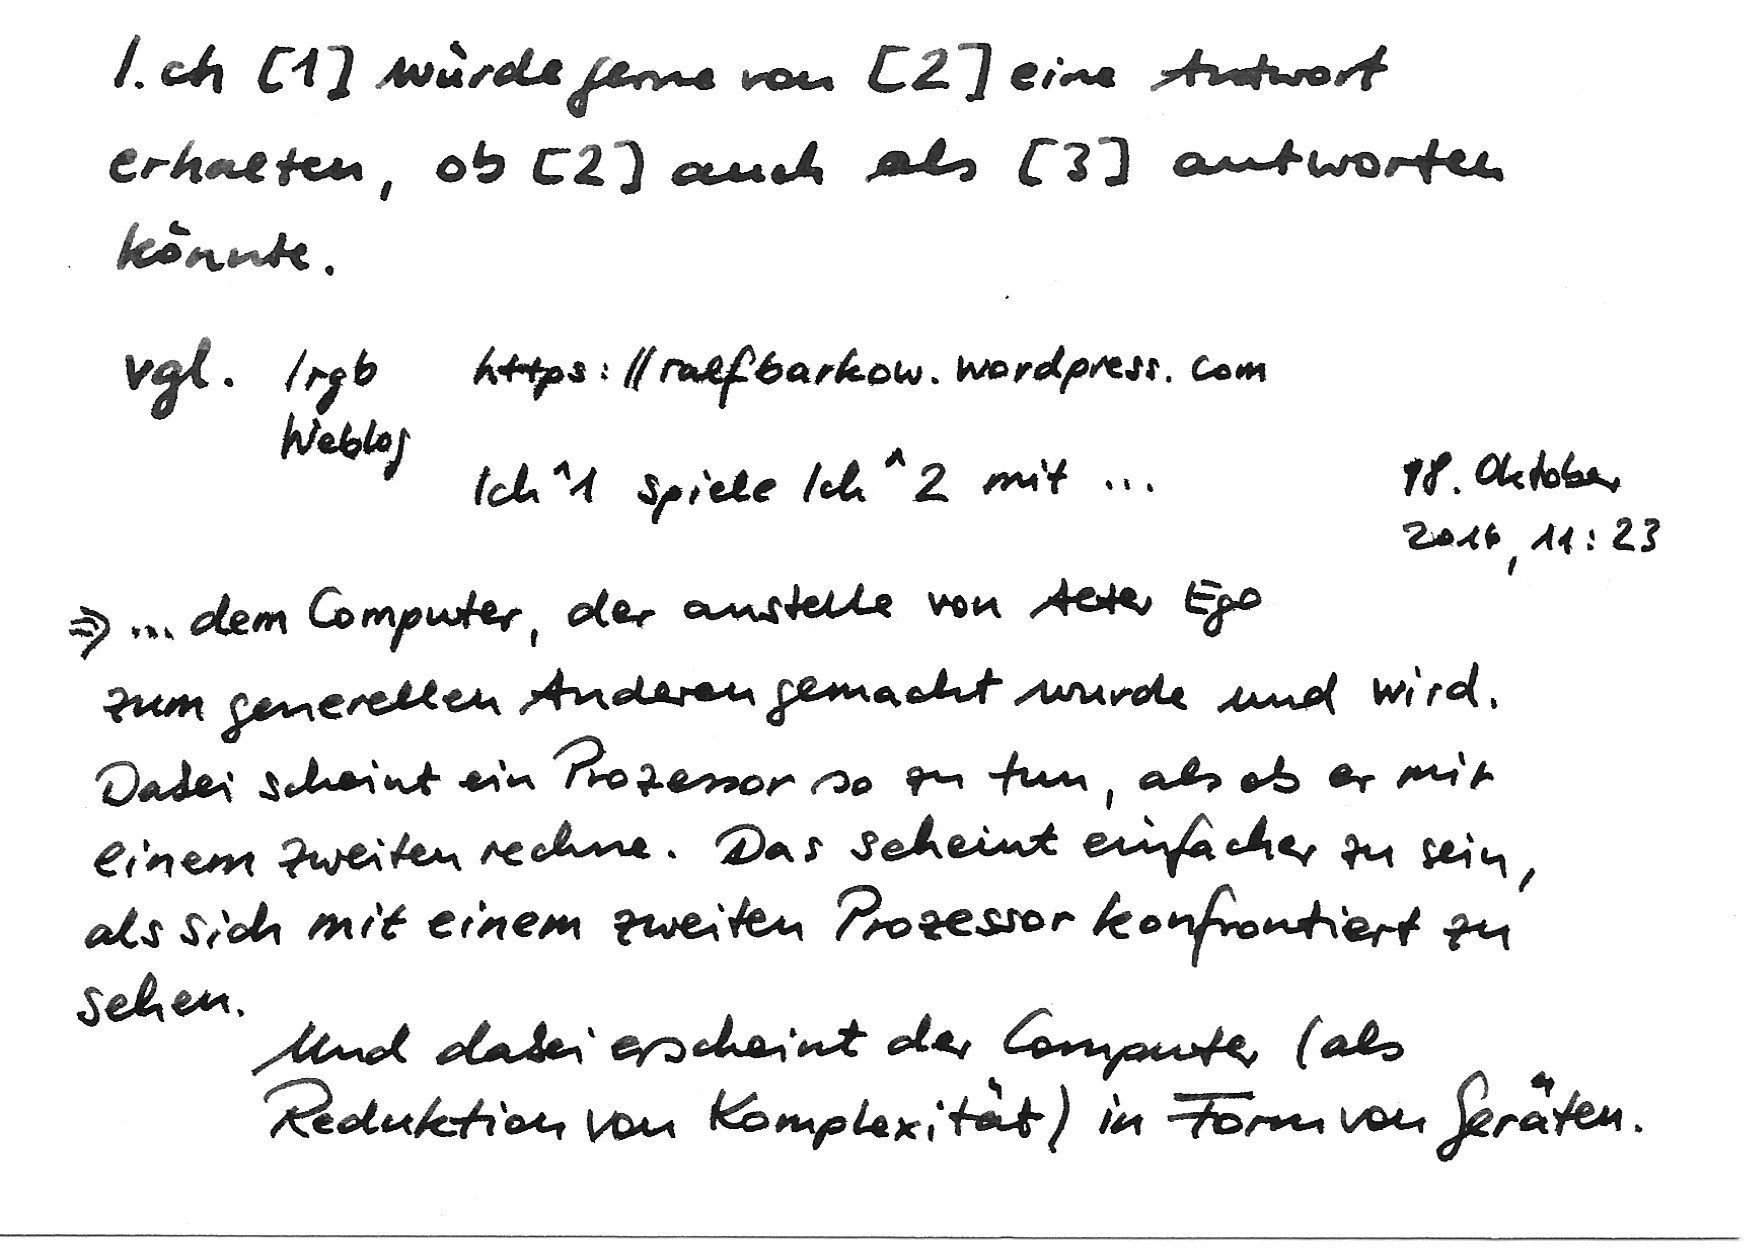 I.ch [1] würde gerne von [2] eine Antwort
erhalten, ob [2] auch als [3] antworten
könnte.
vgl. /rgb https://ralfbarkow.wordpress.com
Weblog
Ich^1 spiele Ich^2 mit ...
18. Oktober
2016, 11:23
⇒ ... dem Computer, der anstelle von Alter Ego
zum generellen Anderen gemacht wurde und wird.
Dabei scheint ein Prozessor so zu tun, als ob er mit
einem zweiten rechne. Das scheint einfacher zu sein,
als sich mit einem zweiten Prozessor konfrontiert zu
sehen.
Und dabei erscheint der Computer (als
Reduktion von Komplexität) in Form von Geräten.